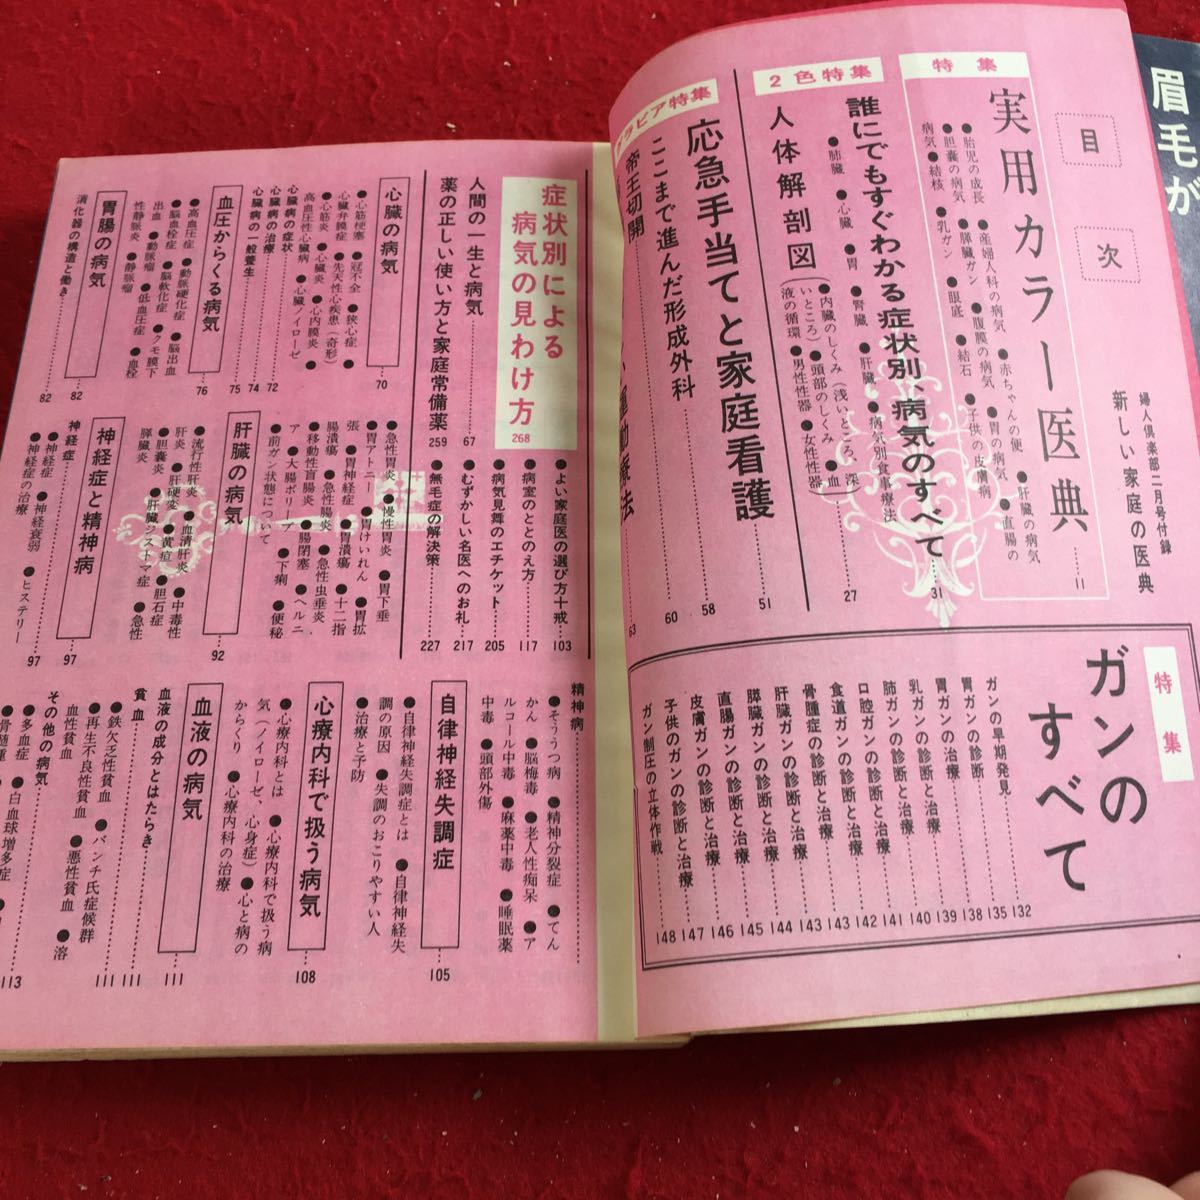 眉毛が
婦人倶楽部二月号付録
新しい家庭の医典
目次
特集
実用カラー医典……11
●胎児の成長●産婦人科の病気●赤ちゃんの便●肝臓の病気
●胆嚢の病気●膵臓ガン●腹膜の病気●胃の病気●直腸の
病気●結核●乳ガン●眼底●結石●子供の皮膚病
誰にでもすぐわかる症状別、病気のすべて……31
●肺臓●心臓●胃●腎臓●肝臓●病気別食事療法……27
2色特集
人体解剖図
(●内臓のしくみ(浅いところ、深
いところ)●頭部のしくみ●血
液の循環●男性性器●女性性器)
応急手当てと家庭看護……51
ラビア特集
ここまで進んだ形成外科……58
帝王切開……60
運動療法……63
特集
ガンの
すべて
ガンの早期発見……132
胃ガンの診断……135
胃ガンの治療……138
乳ガンの診断と治療……139
肺ガンの診断と治療……140
口腔ガンの診断と治療……141
食道ガンの診断と治療……142
骨腫症の診断と治療……143
肝臓ガンの診断と治療……143
膵臓ガンの診断と治療……144
直腸ガンの診断と治療……145
皮膚ガンの診断と治療……146
子供のガンの診断と治療……147
ガン制圧の立体作戦……148
症状別による
病気の見わけ方 268
●よい家庭医の選び方十戒……103
●病室のととのえ方……117
●病気見舞のエチケット……205
●むずかしい名医へのお礼……217
●無毛症の解決策……227
人間の一生と病気……67
薬の正しい使い方と家庭常備薬……259
心臓の病気……70
●心筋梗塞●冠不全●狭心症●
心臓弁膜症●先天性心疾患(奇形)
●心筋炎●心臓炎●心内膜炎●
高血圧性心臓病●心臓ノイローゼ
心臓病の症状……72
心臓病の治療……74
心臓病の一般養生……75
血圧からくる病気……76
●高血圧症●動脈硬化症●脳出血
●脳血栓症●脳軟化症●クモ膜下
出血●動脈瘤●低血圧症●血栓
性静脈炎●静脈瘤
胃腸の病気……82
消化器の構造と働き……82
●急性胃炎●慢性胃炎●胃下垂
●胃アトニー●胃けいれん●胃拡
張●胃神経症●胃潰瘍●十二指
腸潰瘍●急性腸炎●急性虫垂炎
●移動性盲腸炎●腸閉塞●ヘルニ
ア●大腸ポリープ●下痢●便秘
●前ガン状態について
肝臓の病気……92
●流行性肝炎●血清肝炎●中毒性
肝炎●肝硬変●黄疸●胆石症
●胆嚢炎●肝臓ジストマ症●急性
膵臓炎
神経症と精神病……97
神経症……97
●神経症●神経衰弱●ヒステリー
●神経症の治療
精神病
●そううつ病●精神分裂症●てん
かん●脳梅毒●老人性痴呆●ア
ルコール中毒●麻薬中毒●睡眠薬
中毒●頭部外傷
自律神経失調症……105
●自律神経失調症とは●自律神経失
調の原因●失調のおこりやすい人
●治療と予防
心療内科で扱う病気……108
●心療内科とは●心療内科で扱う病
気(ノイローゼ、心身症)●心と病の
からくり●心療内科の治療
血液の病気……111
血液の成分とはたらき……111
貧血……111
●鉄欠乏性貧血●バンチ氏症候群
●再生不良性貧血●悪性貧血●溶
血性貧血
その他の病気……113
●多血症●白血球増多症
●骨髄腫